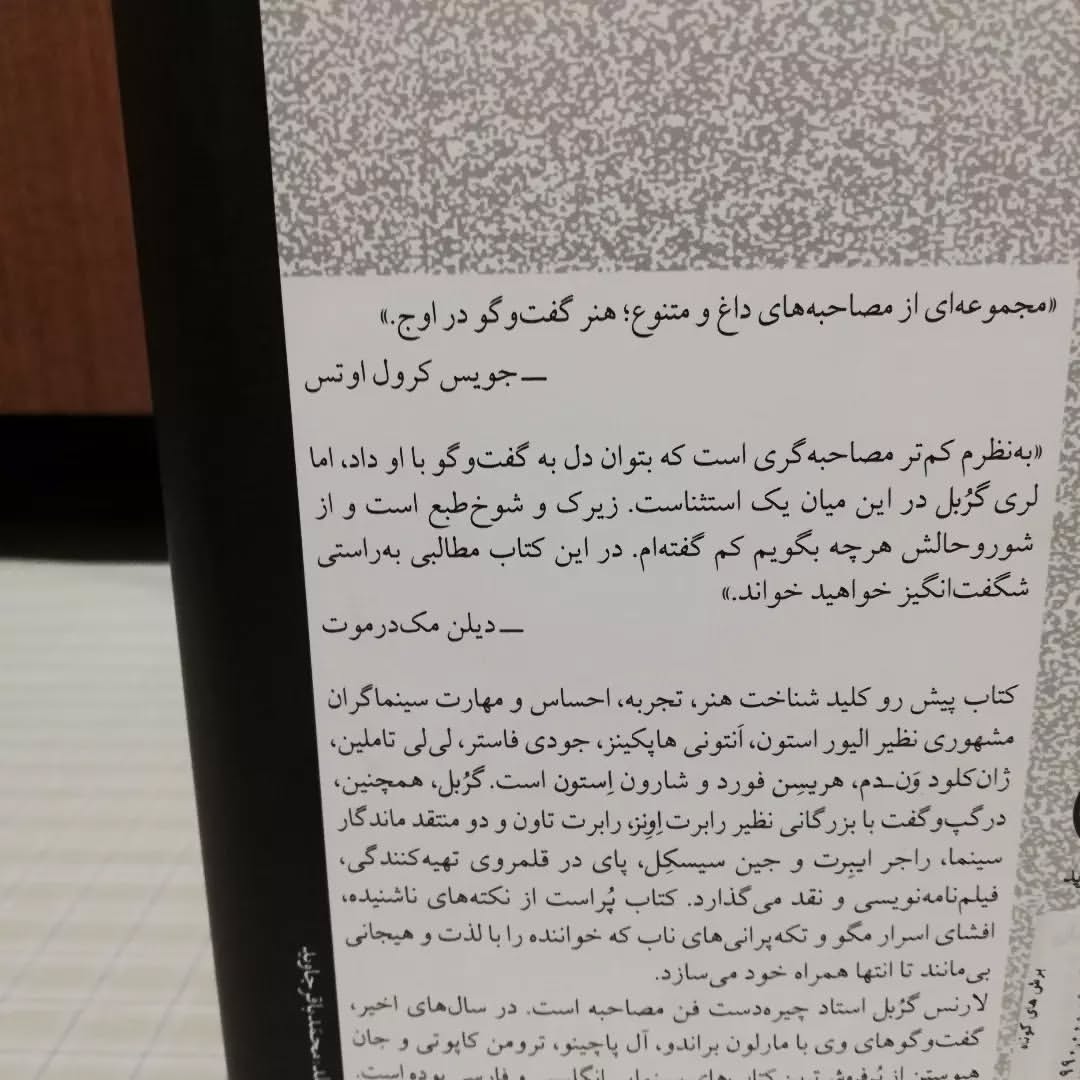 «مجموعه‌ای از مصاحبه‌های داغ و متنوع؛ هنر گفت‌وگو در اوج.»
ــ جویس کرول اوتس
«به‌نظرم کم‌تر مصاحبه‌گری است که بتوان دل به گفت‌وگو با او داد، اما
لری گرُبل در این میان یک استثناست. زیرک و شوخ‌طبع است و از
شوروحالش هرچه بگویم کم گفته‌ام. در این کتاب مطالبی به‌راستی
شگفت‌انگیز خواهید خواند.»
ــ دیلن مک‌درموت
کتاب پیش رو کلید شناخت هنر، تجربه، احساس و مهارت سینماگران
مشهوری نظیر الیور استون، آنتونی هاپکینز، جودی فاستر، لی‌لی تاملین،
ژان‌کلود وَن‌ـدم، هریسِن فورد و شارون اِستون است. گرُبل، همچنین،
درگپ‌وگفت با بزرگانی نظیر رابرت اِوِنز، رابرت تاون و دو منتقد ماندگار
سینما، راجر ایبِرت و جین سیسکِل، پای در قلمروی تهیه‌کنندگی،
فیلم‌نامه‌نویسی و نقد می‌گذارد. کتاب پُراست از نکته‌های ناشنیده،
افشای اسرار مگو و تکه‌پرانی‌های ناب که خواننده را با لذت و هیجانی
بی‌مانند تا انتها همراه خود می‌سازد.
لارنس گرُبل استاد چیره‌دست فن مصاحبه است. در سال‌های اخیر،
گفت‌وگوهای وی با مارلون براندو، آل پاچینو، ترومن کاپوتی و جان
هیوستن از پُرفروش‌ترین کتاب‌های سینمایی انگلیسی و فارسی بوده است.
محمدباقر جاوید
برش های کوتاه